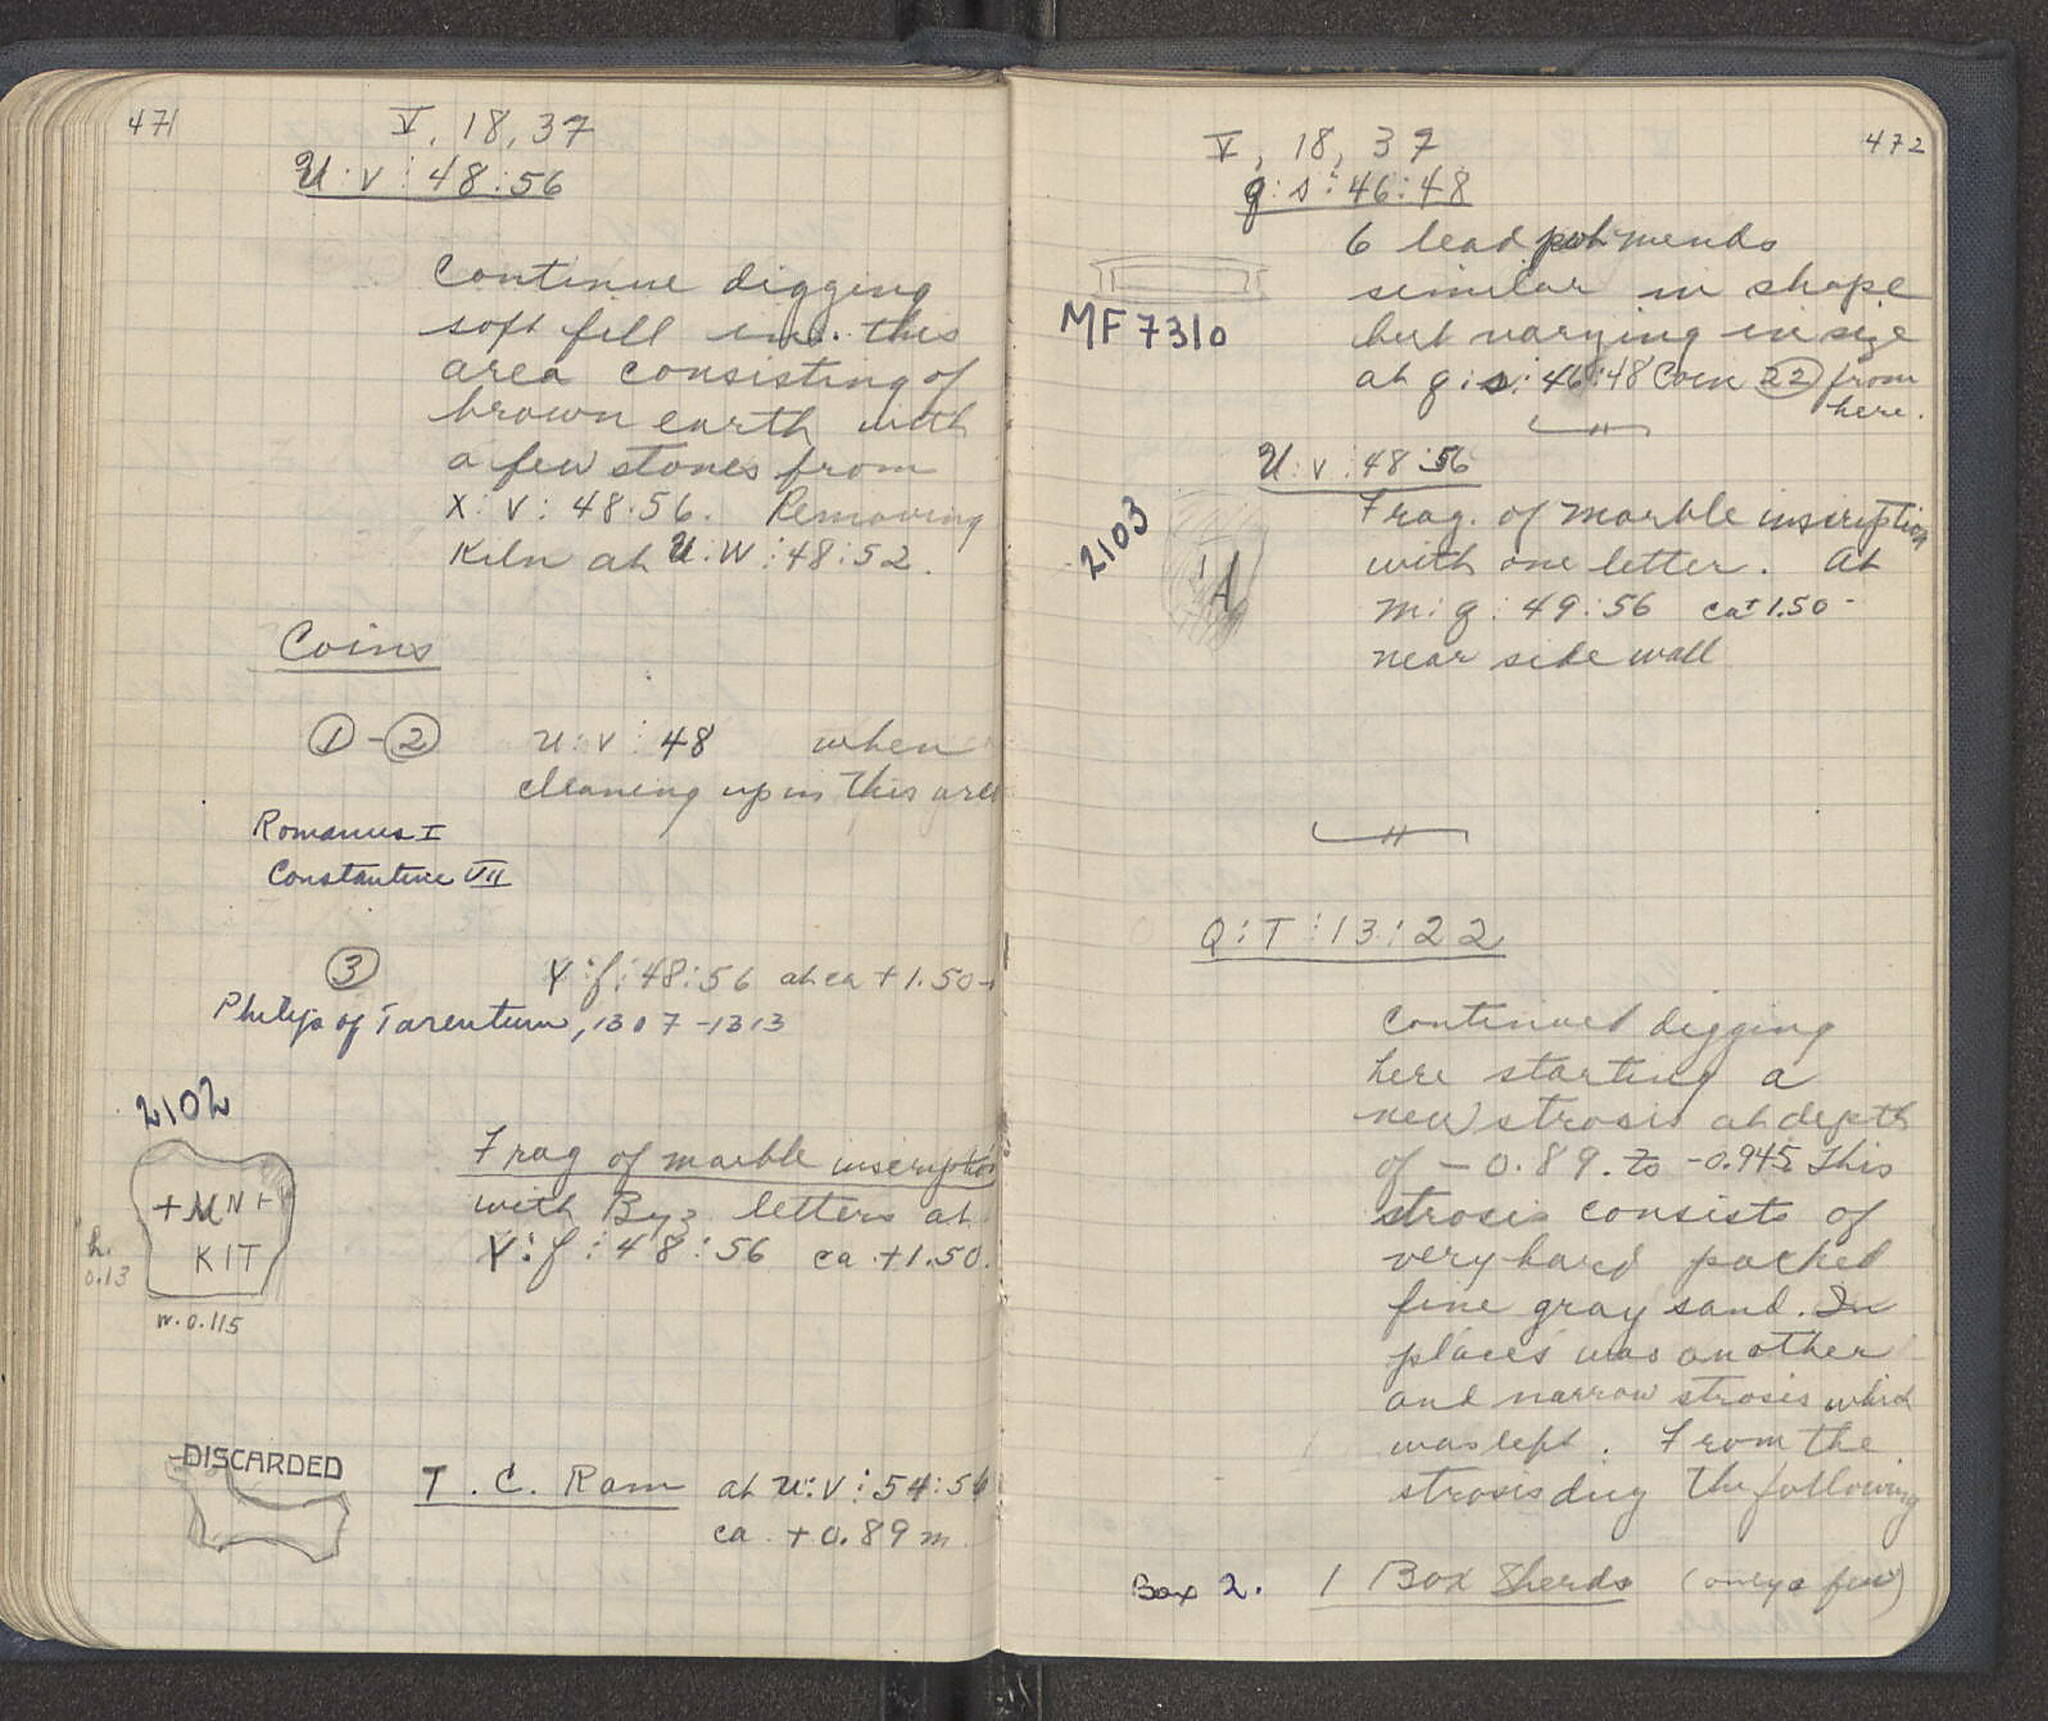 471
V, 18, 37
U:v:48:56
Continue digging
soft fill in this
area consisting of
brown earth with
a few stones from
X:V:48:56. Removing
Kiln at U:W:48:52.
Coins
1 - 2 u:v:48 when
cleaning up in this area
Romanus I
Constantine VII
3 Y:f:48:56 at ca +1.50-
Philip of Tarentum, 1307-1313
2102
Frag of marble inscription
with Byz. letters at
Y:f:48:56 ca +1.50.
+ M N
KIT
h.
0.13
w. 0.115
DISCARDED
T. C. Ram at u:v:54:56
ca +0.89 m
472
V, 18, 37
q:s:46:48
6 lead pot mends
similar in shape
but varying in size
at q:s:46:48 Coin 22 from
here.
MF 7310
U:v:48:56
Frag. of marble inscription
with one letter. At
m:q:49:56 ca +1.50-
near side wall
2103
A
Q:T:13:22
Continued digging
here starting a
new strosis at depth
of -0.89. to -0.945. This
strosis consists of
very hard packed
fine gray sand. In
places was another
and narrow strosis which
was left. From the
strosis dug the following
Box 2. 1 Box Sherds (only a few)